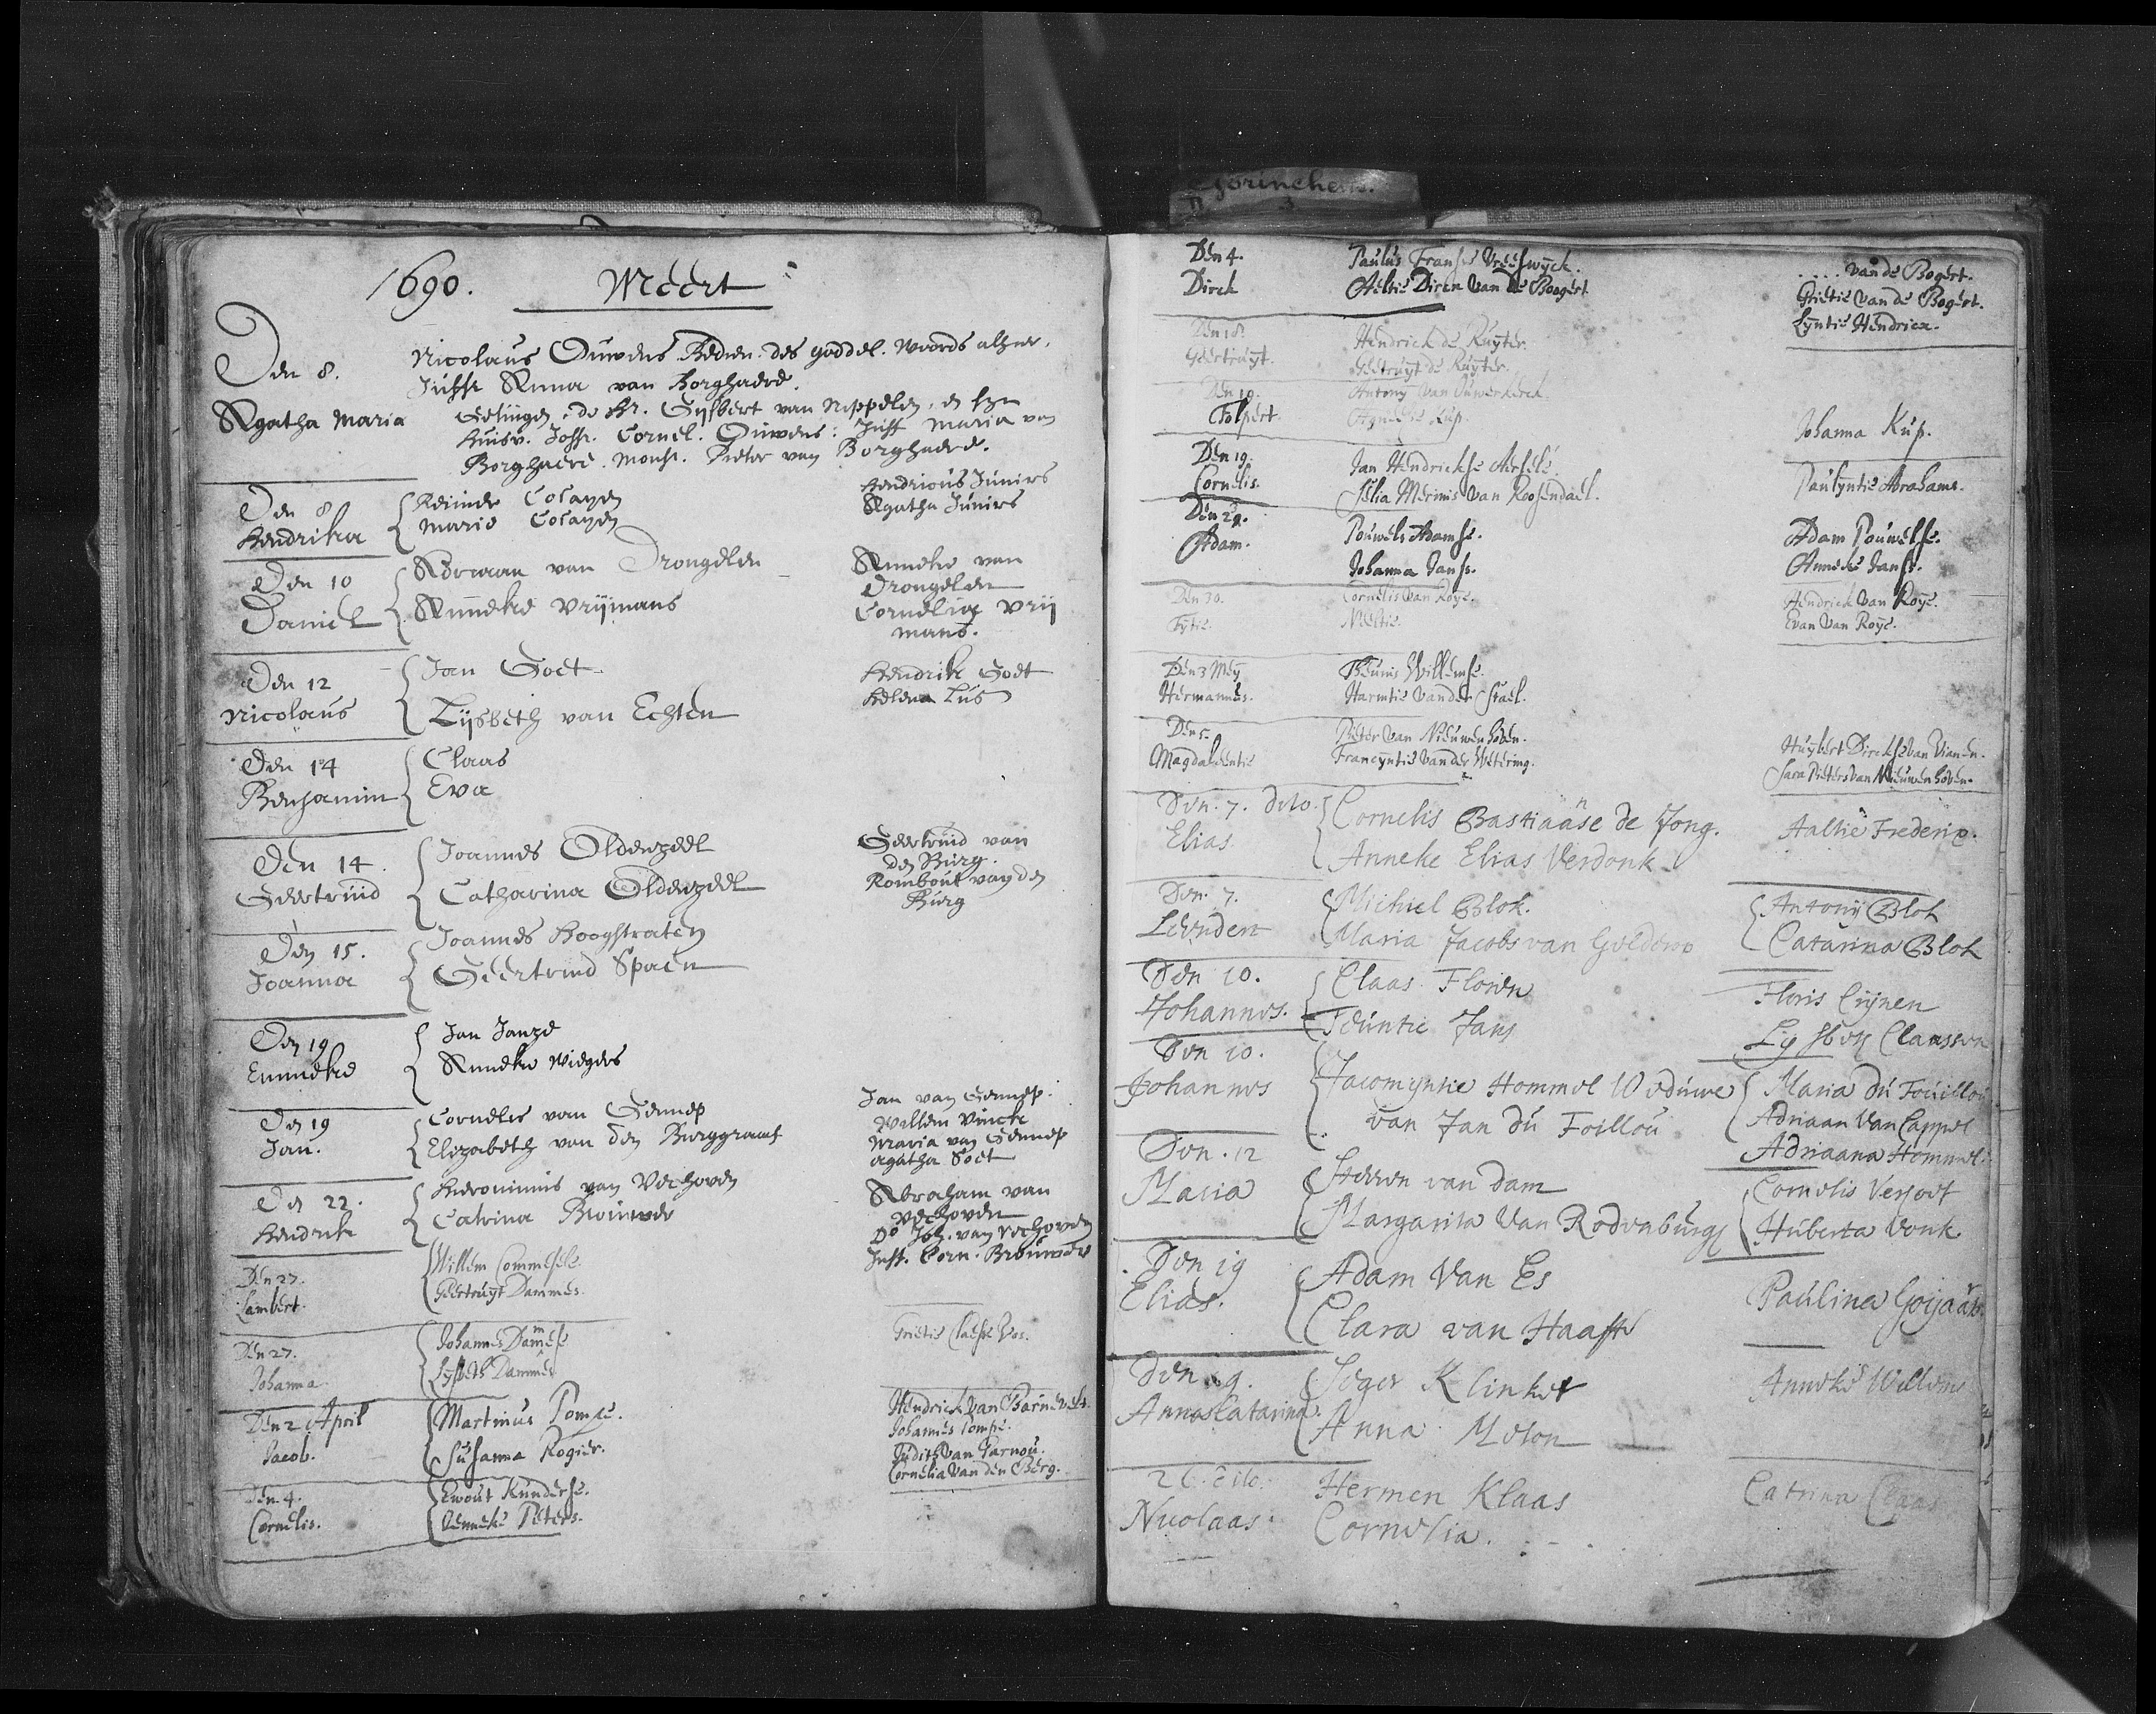 Gorinchem.
3
1690. Meert
Den 8.
Agatha Maria
Nicolaus Ouwens Bedien. des goddel. woords alhier.
Juffr Anna van Borghaere.
Getuigen, de Hr. Gijsbert van Nispelen, en syn
Huisv. Joffr. Cornel. Ouwens: Juff Maria van
Borghaere. Monsr. Pieter van Borghaere.
Den 8
Hendrika
Reinder Colayen
Marie Colayen
Hendricus Juniers
Agatha Juniers
Den 10
Daniel
Adriaan van Drongelen
Anneke Vrijmans
Anneke van
Drongelen
Cornelia Vrij
mans.
Den 12
Nicolaus
Jan Soet
Lijsbeth van Echten
Hendrik Soet
Helena Lus
Den 14
Benjamin
Claas
Eva
Den 14
Geertruid
Joannes Oldenzeel
Catharina Oldenzeel
Geertruid van
den Burg.
Rombout van den
Burg
Den 15.
Joanna
Joannes Hoogstraten
Geertruid Spaen
Den 19
Enneke
Jan Janze
Anneke Wiegers
Den 19
Jan.
Cornelis van Gennep
Elizabeth van den Burggraaf
Jan van Gennep.
Willem Vinck
Maria van Gennep
Agatha Soet
Den 22.
Hendrik
Hieronimus van Verhoven
Catrina Brouwer
Abraham van
Verhoven
Do Joh. van Verhoven
Juff. Corn. Brouwer
Den 27.
Lambert.
Willem Commesele
Geertruyt Dammes.
Den 27.
Johanna
Johannes Damese
Lysbeth Dammes
Grietie Claesse Vos.
Den 2 April
Jacob.
Martinus Pompe.
Susanna Rogier.
Hendrick van Barnevelt.
Johannes Pompe.
Judith van Parnou.
Cornelia van den Berg.
Den 4.
Cornelis.
Ewout Kunderse.
Jenneke Peters.
Den 4.
Dirck
Paulus Franse Vreeswyck.
Aeltie Dircx van de Boogert
.... van de Bogert.
Grietie van de Bogert.
Lyntie Hendricx.
Den 18.
Geertruyt.
Hendrick de Ruyter.
Geetruyt de Ruyter.
Den 19.
Folpert
Antony van Ouwerkerck.
Agneetie Kup.
Johanna Kup.
Den 19.
Cornelis.
Jan Hendrickse Aersele.
Jelia Merinis van Roosendael.
Paulyntie Abrahams.
Den 29.
Adam.
Pouwels Adamse.
Johanna Jans.
Adam Pouwelse.
Anneke Jans.
Den 30.
Fytie.
Cornelis van Roye.
Neeltie.
Hendrick van Roye.
Evan van Roye.
Den 3 Mey
Hermannus.
Teunis Willemse.
Harmtie vander Stael.
Den 5.
Magdaleentie
Peter van Nieuwenhoven.
Francyntie vander Wetering.
Huybert Dirckse van Vianen.
Sara Pieters van Nieuwenhoven.
Den. 7. dito.
Elias.
Cornelis Bastiaanse de Jong.
Anneke Elias Verdonk
Aaltie Frederix.
Den. 7.
Leendert
Michiel Blok.
Maria Jacobs van Gelderop
Antony Blok
Catarina Blok
Den 10.
Johannes.
Claas Floren
Teuntie Jans
Floris Cijnen
Lijsbeth Claassen
Den 10.
Johannes
Jacomyntie Hommel Weduwe
van Jan du Foillou
Maria du Fouillou
Adriaan van Cappel
Adriaana Hommel.
Den. 12
Maria
Steven van Dam
Margarita van Rodenburgh
Cornelis Verhoef
Huberta Vonk
Den 19
Elias.
Adam van Es
Clara van Haaften
Paulina Goijaarts.
Den 19.
Anna Catarina.
Seger Klinkert
Anna Meton
Anneke Willems
26. dito.
Nicolaas.
Hermen Klaas
Cornelia.
Catrina Claas